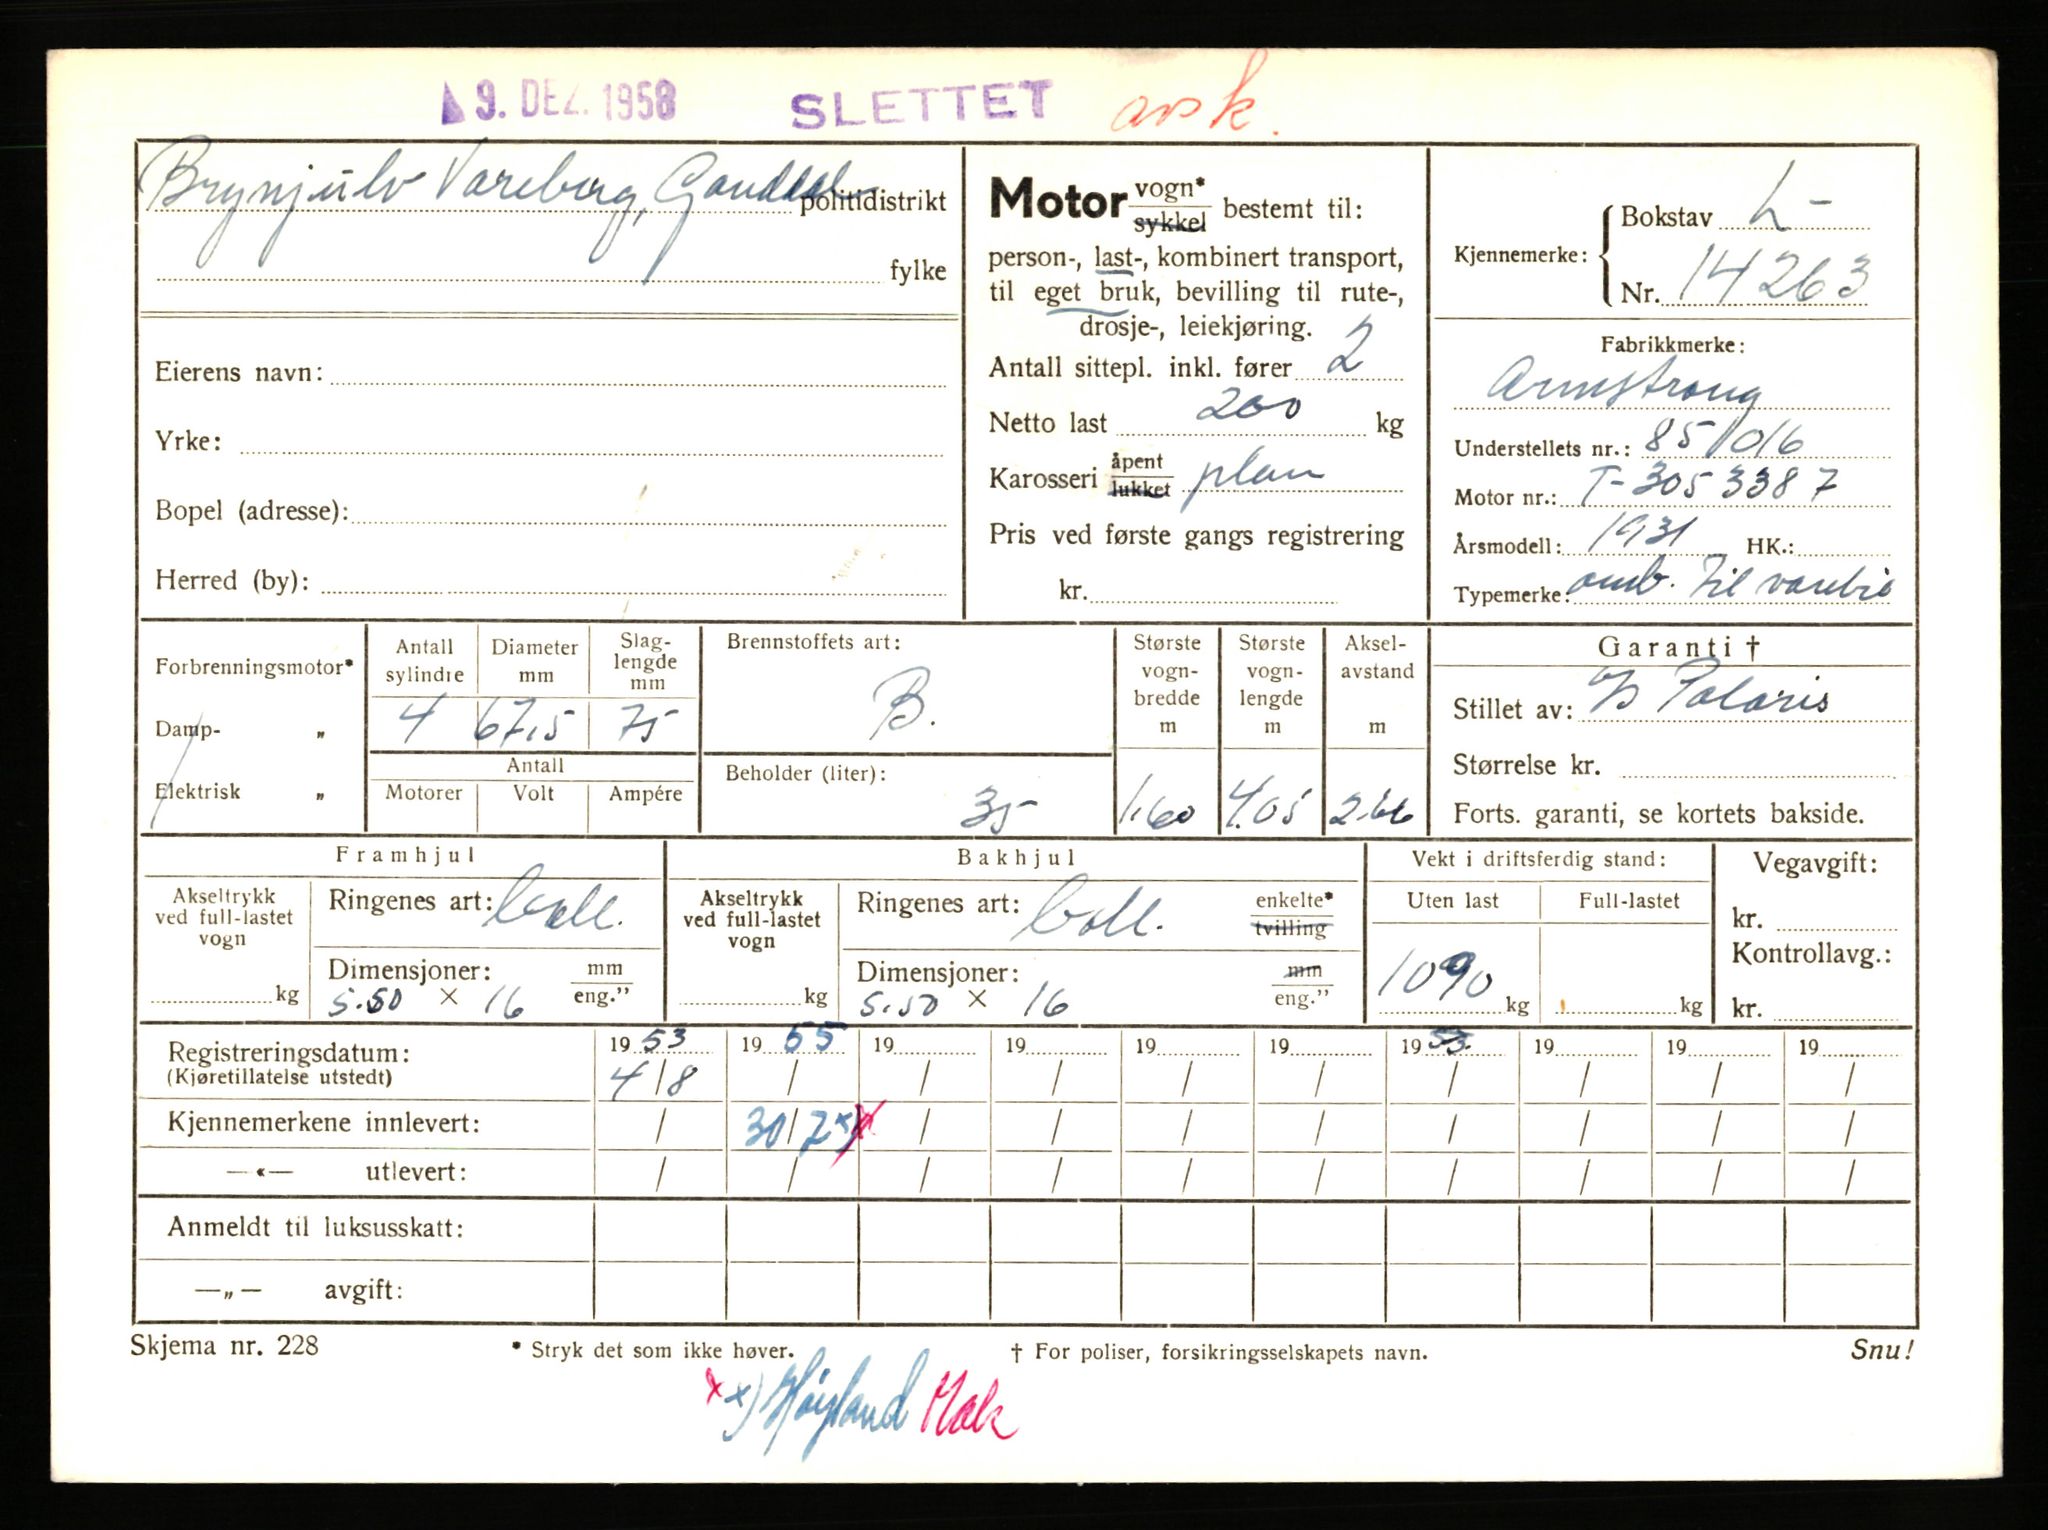 9. DEZ. 1958 SLETTET avsk.
Brynjulv Vareberg, Gauddal politidistrikt
fylke
Eierens navn:
Yrke:
Bopel (adresse):
Herred (by):
Motor vogn* sykkel bestemt til:
person-, last-, kombinert transport,
til eget bruk, bevilling til rute-,
drosje-, leiekjøring.
Antall sittepl. inkl. fører 2
Netto last 200 kg
Karosseri åpent lukket plan
Pris ved første gangs registrering
kr.
Kjennemerke: Bokstav L-
Nr. 14263
Fabrikkmerke:
Armstrong
Understellets nr.: 85/016
Motor nr.: T-3053387
Årsmodell: 1931 HK.:
Typemerke: omb. til varebil
Forbrenningsmotor*
Damp- „
Elektrisk „
Antall sylindre Diameter mm Slag-lengde mm
4 67,5 75
Antall
Motorer Volt Ampére
Brennstoffets art:
B.
Beholder (liter):
35
Største vogn-bredde m Største vogn-lengde m Aksel-avstand m
1.60 4.05 2.66
Garanti †
Stillet av: I/S Polaris
Størrelse kr.
Forts. garanti, se kortets bakside.
Framhjul
Akseltrykk ved full-lastet vogn
kg
Ringenes art: Ball.
Dimensjoner: mm eng."
5.50 × 16
Bakhjul
Akseltrykk ved full-lastet vogn
kg
Ringenes art: Ball. enkelte* tvilling
Dimensjoner: mm eng."
5.50 × 16
Vekt i driftsferdig stand:
Uten last Full-lastet
1090 kg kg
Vegavgift:
kr.
Kontrollavg.:
kr.
Registreringsdatum: 19 53 19 55 19 19 19 19 19 53. 19 19 19
(Kjøretillatelse utstedt) 4/8 / / / / / / / / /
Kjennemerkene innlevert: / 30/7 x) x / / / / / / / /
—«— utlevert: / / / / / / / / / /
Anmeldt til luksusskatt:
—„— avgift:
Skjema nr. 228 * Stryk det som ikke høver. † For poliser, forsikringsselskapets navn. Snu!
x x) Høyland Mak